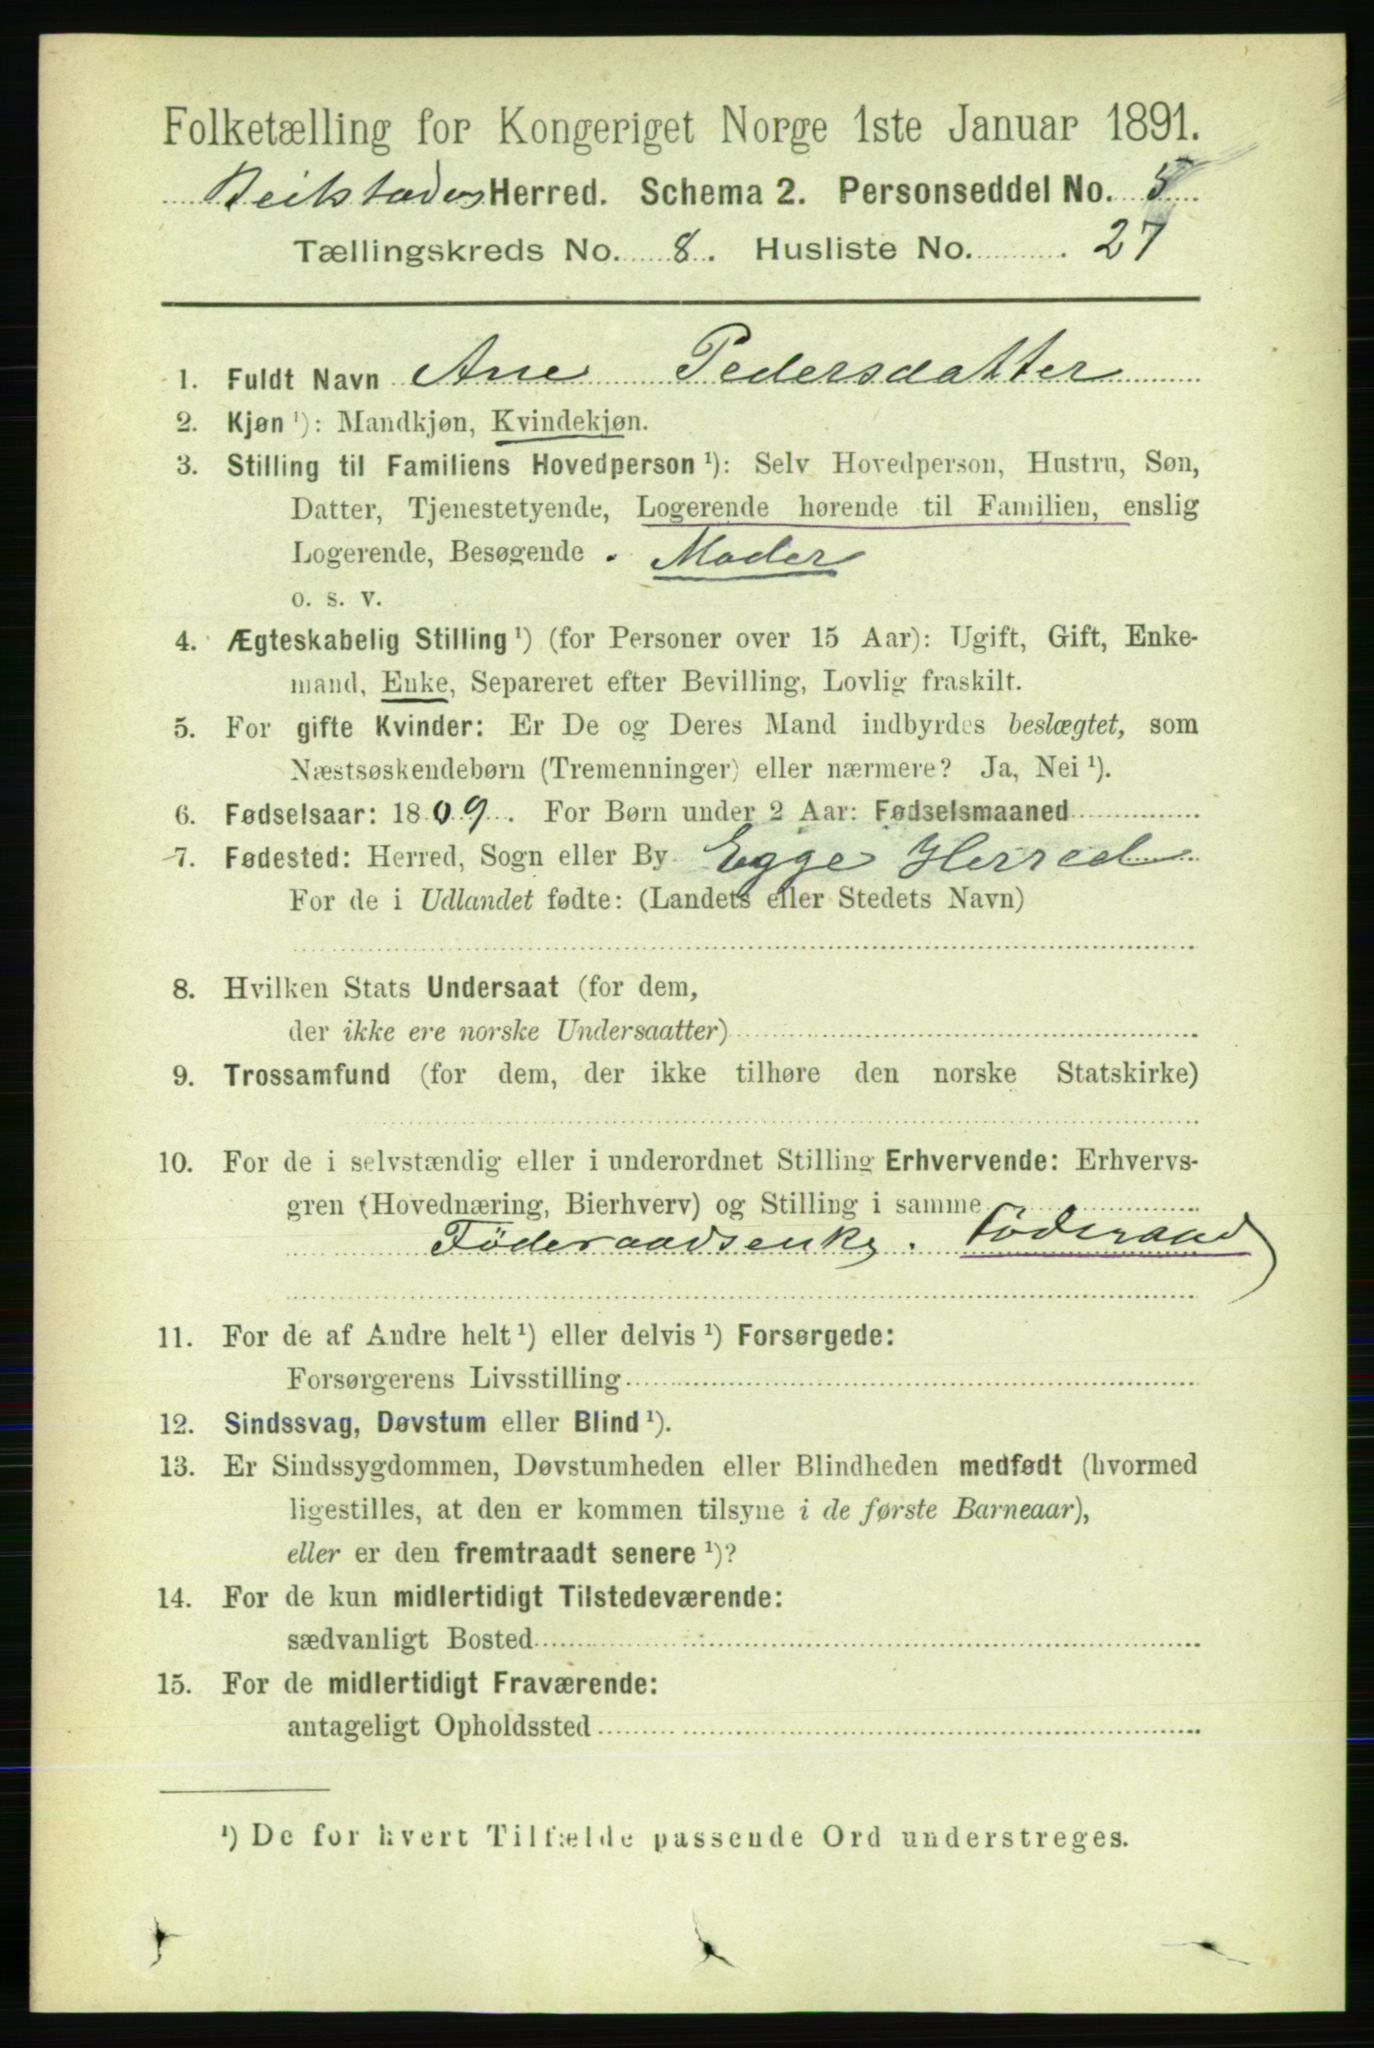 Folketælling for Kongeriget Norge 1ste Januar 1891.
Beitstadens Herred. Schema 2. Personseddel No. 5
Tællingskreds No. 8. Husliste No. 27
1. Fuldt Navn Ane Pedersdatter
2. Kjøn ¹): Mandkjøn, Kvindekjøn.
3. Stilling til Familiens Hovedperson ¹): Selv Hovedperson, Hustru, Søn,
Datter, Tjenestetyende, Logerende hørende til Familien, enslig
Logerende, Besøgende . Moder
o. s. v.
4. Ægteskabelig Stilling ¹) (for Personer over 15 Aar): Ugift, Gift, Enke-
mand, Enke, Separeret efter Bevilling, Lovlig fraskilt.
5. For gifte Kvinder: Er De og Deres Mand indbyrdes beslægtet, som
Næstsøskendebørn (Tremenninger) eller nærmere? Ja, Nei ¹).
6. Fødselsaar: 1809. For Børn under 2 Aar: Fødselsmaaned
7. Fødested: Herred, Sogn eller By Egge Herred
For de i Udlandet fødte: (Landets eller Stedets Navn)
8. Hvilken Stats Undersaat (for dem,
der ikke ere norske Undersaatter)
9. Trossamfund (for dem, der ikke tilhøre den norske Statskirke)
10. For de i selvstændig eller i underordnet Stilling Erhvervende: Erhvervs-
gren (Hovednæring, Bierhverv) og Stilling i samme
Föderaadsenke. Föderaad
11. For de af Andre helt ¹) eller delvis ¹) Forsørgede:
Forsørgerens Livsstilling
12. Sindssvag, Døvstum eller Blind ¹).
13. Er Sindssygdommen, Døvstumheden eller Blindheden medfødt (hvormed
ligestilles, at den er kommen tilsyne i de første Barneaar),
eller er den fremtraadt senere ¹)?
14. For de kun midlertidigt Tilstedeværende:
sædvanligt Bosted
15. For de midlertidigt Fraværende:
antageligt Opholdssted
¹) De for hvert Tilfælde passende Ord understreges.